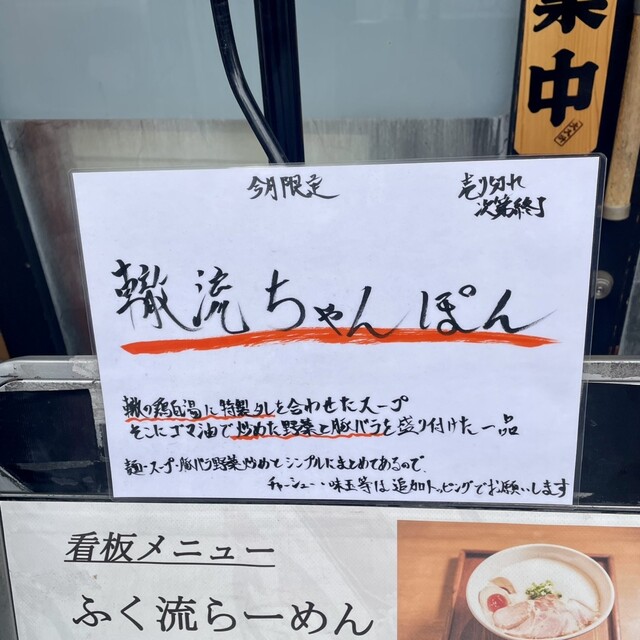 業中
今月限定
売り切れ
次第終了
轍流ちゃんぽん
轍の鶏白湯に特製タレを合わせたスープ
そこにゴマ油で炒めた野菜と豚バラを盛り付けた一品
麺・スープ・豚バラ野菜炒めとシンプルにまとめてあるので、
チャーシュー、味玉等は追加トッピングでお願いします
看板メニュー
ふく流らーめん